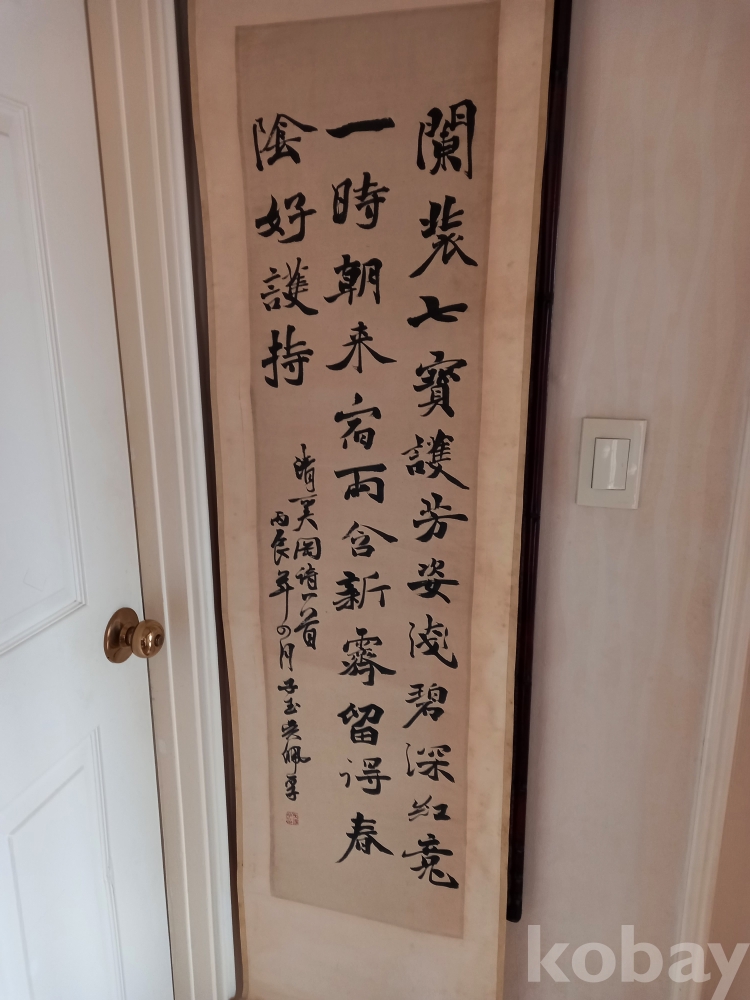 闌裝七寶護芳姿淺碧深紅竟
一時朝来宿雨含新霽留得春
陰好護持
诗一首
丙辰年四月子玉吳佩孚
kobay